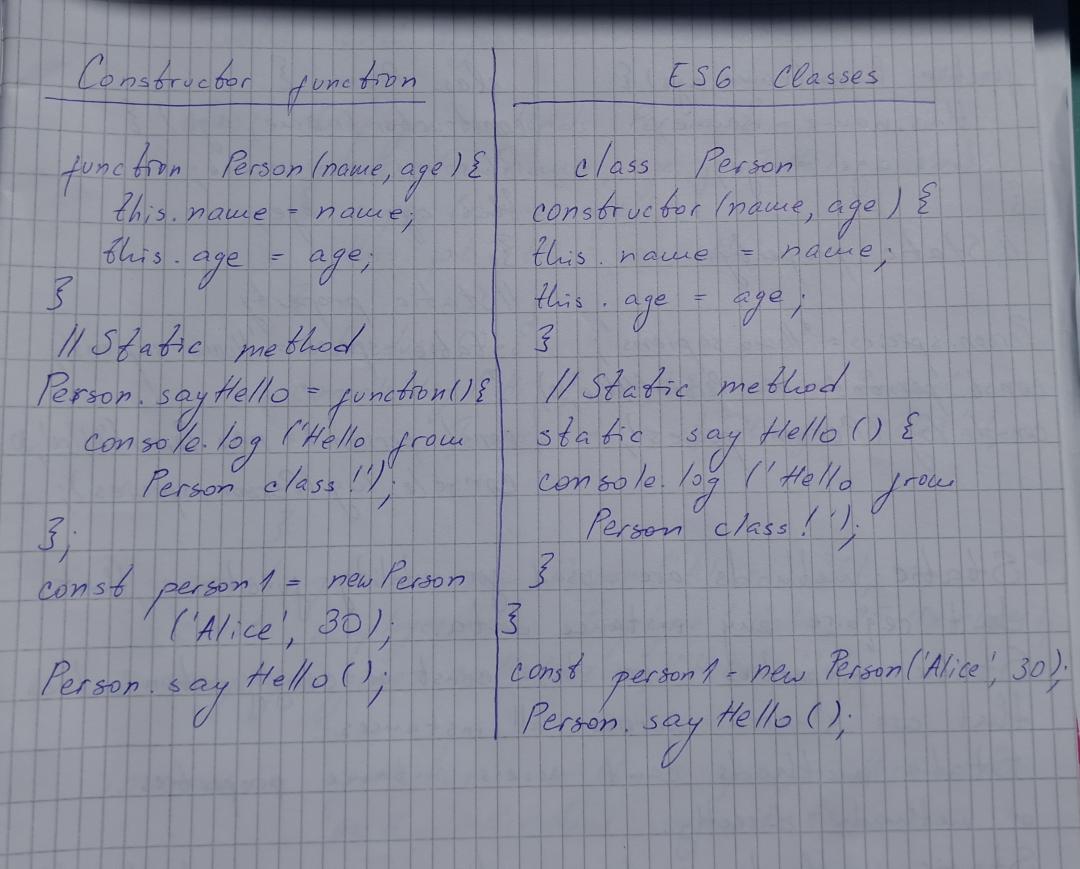 Constructor function
function Person(name, age) {
this.name = name;
this.age = age;
}
// Static method
Person.sayHello = function() {
console.log ('Hello from
Person class!');
};
const person1 = new Person
('Alice', 30);
Person.sayHello();
ES6 Classes
class Person
constructor(name, age) {
this.name = name;
this.age = age;
}
// Static method
static sayHello() {
console.log ('Hello from
Person class!');
}
}
const person1 = new Person('Alice', 30);
Person.sayHello();